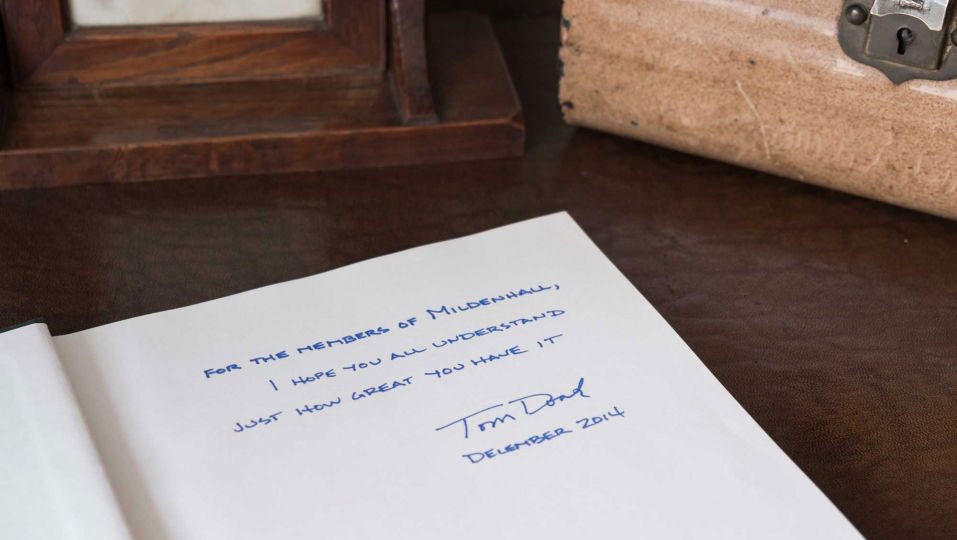 FOR THE MEMBERS OF MILDENHALL,
I HOPE YOU ALL UNDERSTAND
JUST HOW GREAT YOU HAVE IT
Tom Doak
DECEMBER 2014